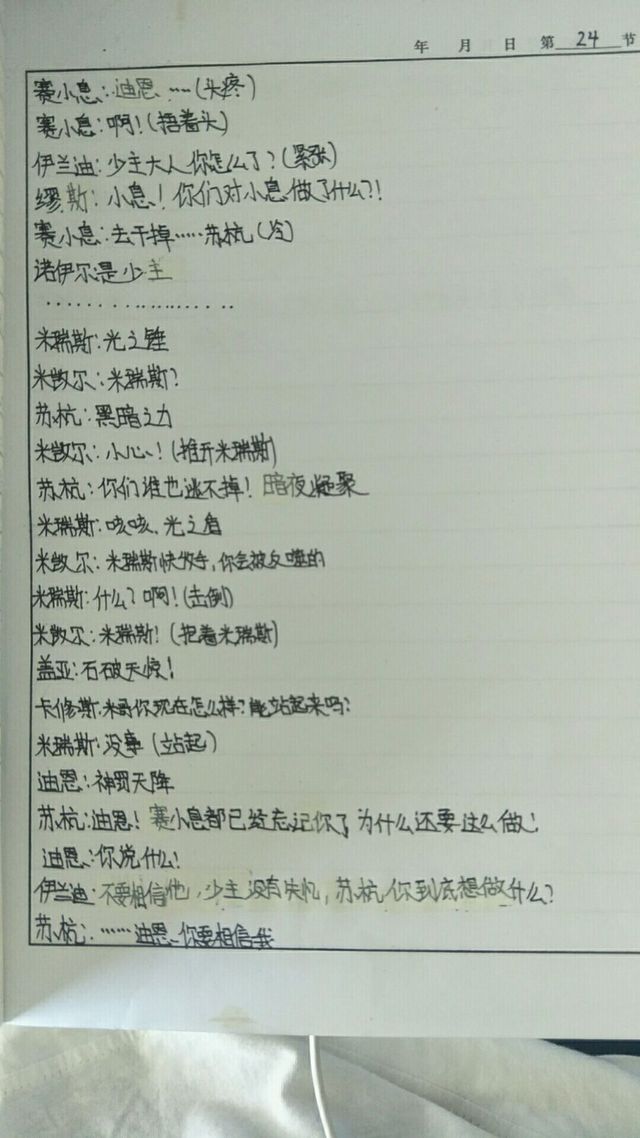 年 月 日 第 24 节
赛小息：迪恩……（头疼）
赛小息：啊！（捂着头）
伊兰迪：少主大人你怎么了？（紧张）
缪斯：小息！你们对小息做了什么？！
赛小息：去干掉……苏杭（冷）
诺伊尔：是少主
………………
米瑞斯：光之锤
米欧尔：米瑞斯？
苏杭：黑暗之力
米欧尔：小心！（推开米瑞斯）
苏杭：你们谁也逃不掉！暗夜凝聚
米瑞斯：咳咳、光之盾
米欧尔：米瑞斯快放手，你会被反噬的
米瑞斯：什么？啊！（击倒）
米欧尔：米瑞斯！（抱着米瑞斯）
盖亚：石破天惊！
卡修斯：米哥你现在怎么样？能站起来吗？
米瑞斯：没事（站起）
迪恩：神罚天降
苏杭：迪恩！赛小息都已经忘记你了，为什么还要这么做！
迪恩：你说什么！
伊兰迪：不要相信他，少主没有失忆，苏杭你到底想做什么？
苏杭：……迪恩、你要相信我